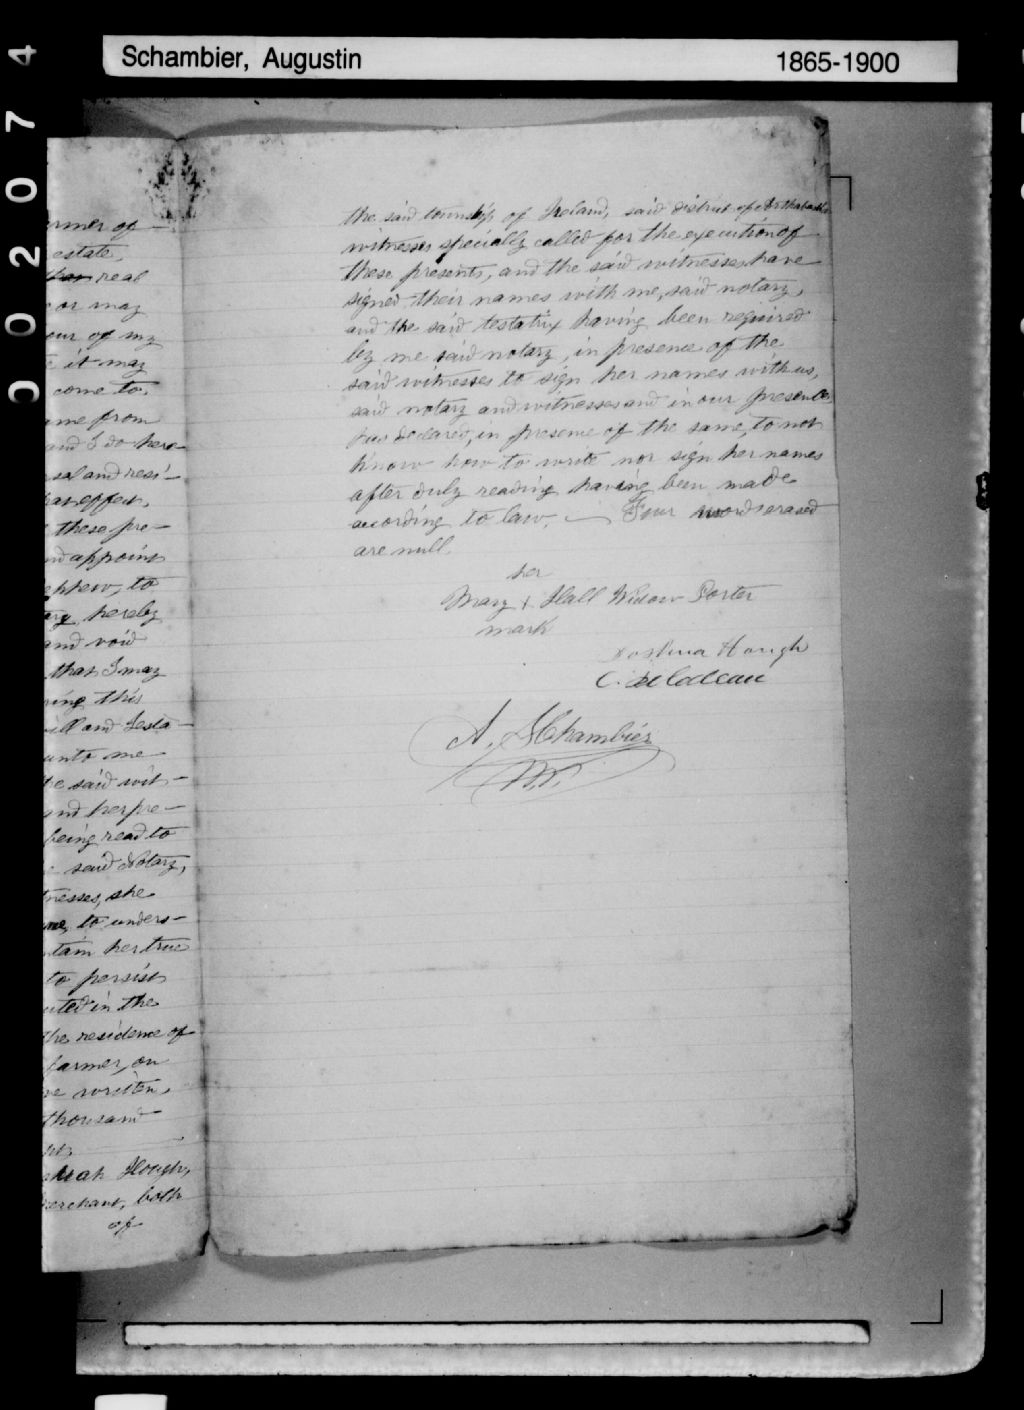 Schambier, Augustin 1865-1900
0002074
rmer of
estate,
real
or may
our of my
it may
come to
ame from
and I do here-
sal and resi-
has effect,
these pre-
nd appoint
ephew, to
ary, hereby
and void
that I may
ring this
ill and Testa-
unto me
he said wit-
and her pre-
being read to
said Notary,
tnesses, she
me, to unders-
tain her true
to persist
uted in the
the residence of
farmer, on
re written,
thousand
ht,
Hough,
merchant, both
of
the said township of Ireland, said district of Arthabaska
witnesses specially called for the execution of
these presents, and the said witnesses have
signed their names with me, said notary,
and the said testatrix having been required
by me said notary, in presence of the
said witnesses to sign her names with us,
said notary and witnesses and in our presences
has declared, in presence of the same, to not
know how to write nor sign her names
after duly reading having been made
according to law. — Four words erased
are null.
her
Mary + Hall Widow Porter
mark
Hough
C.
A. SChambier
N.P.